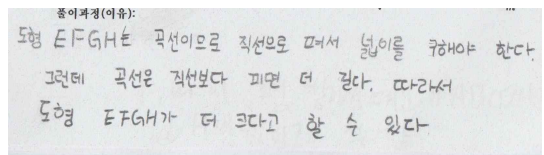 풀이과정(이유):
도형 EFGH는 곡선이므로 직선으로 펴서 넓이를 구해야 한다.
그런데 곡선은 직선보다 피면 더 길다. 따라서
도형 EFGH가 더 크다고 할 수 있다.